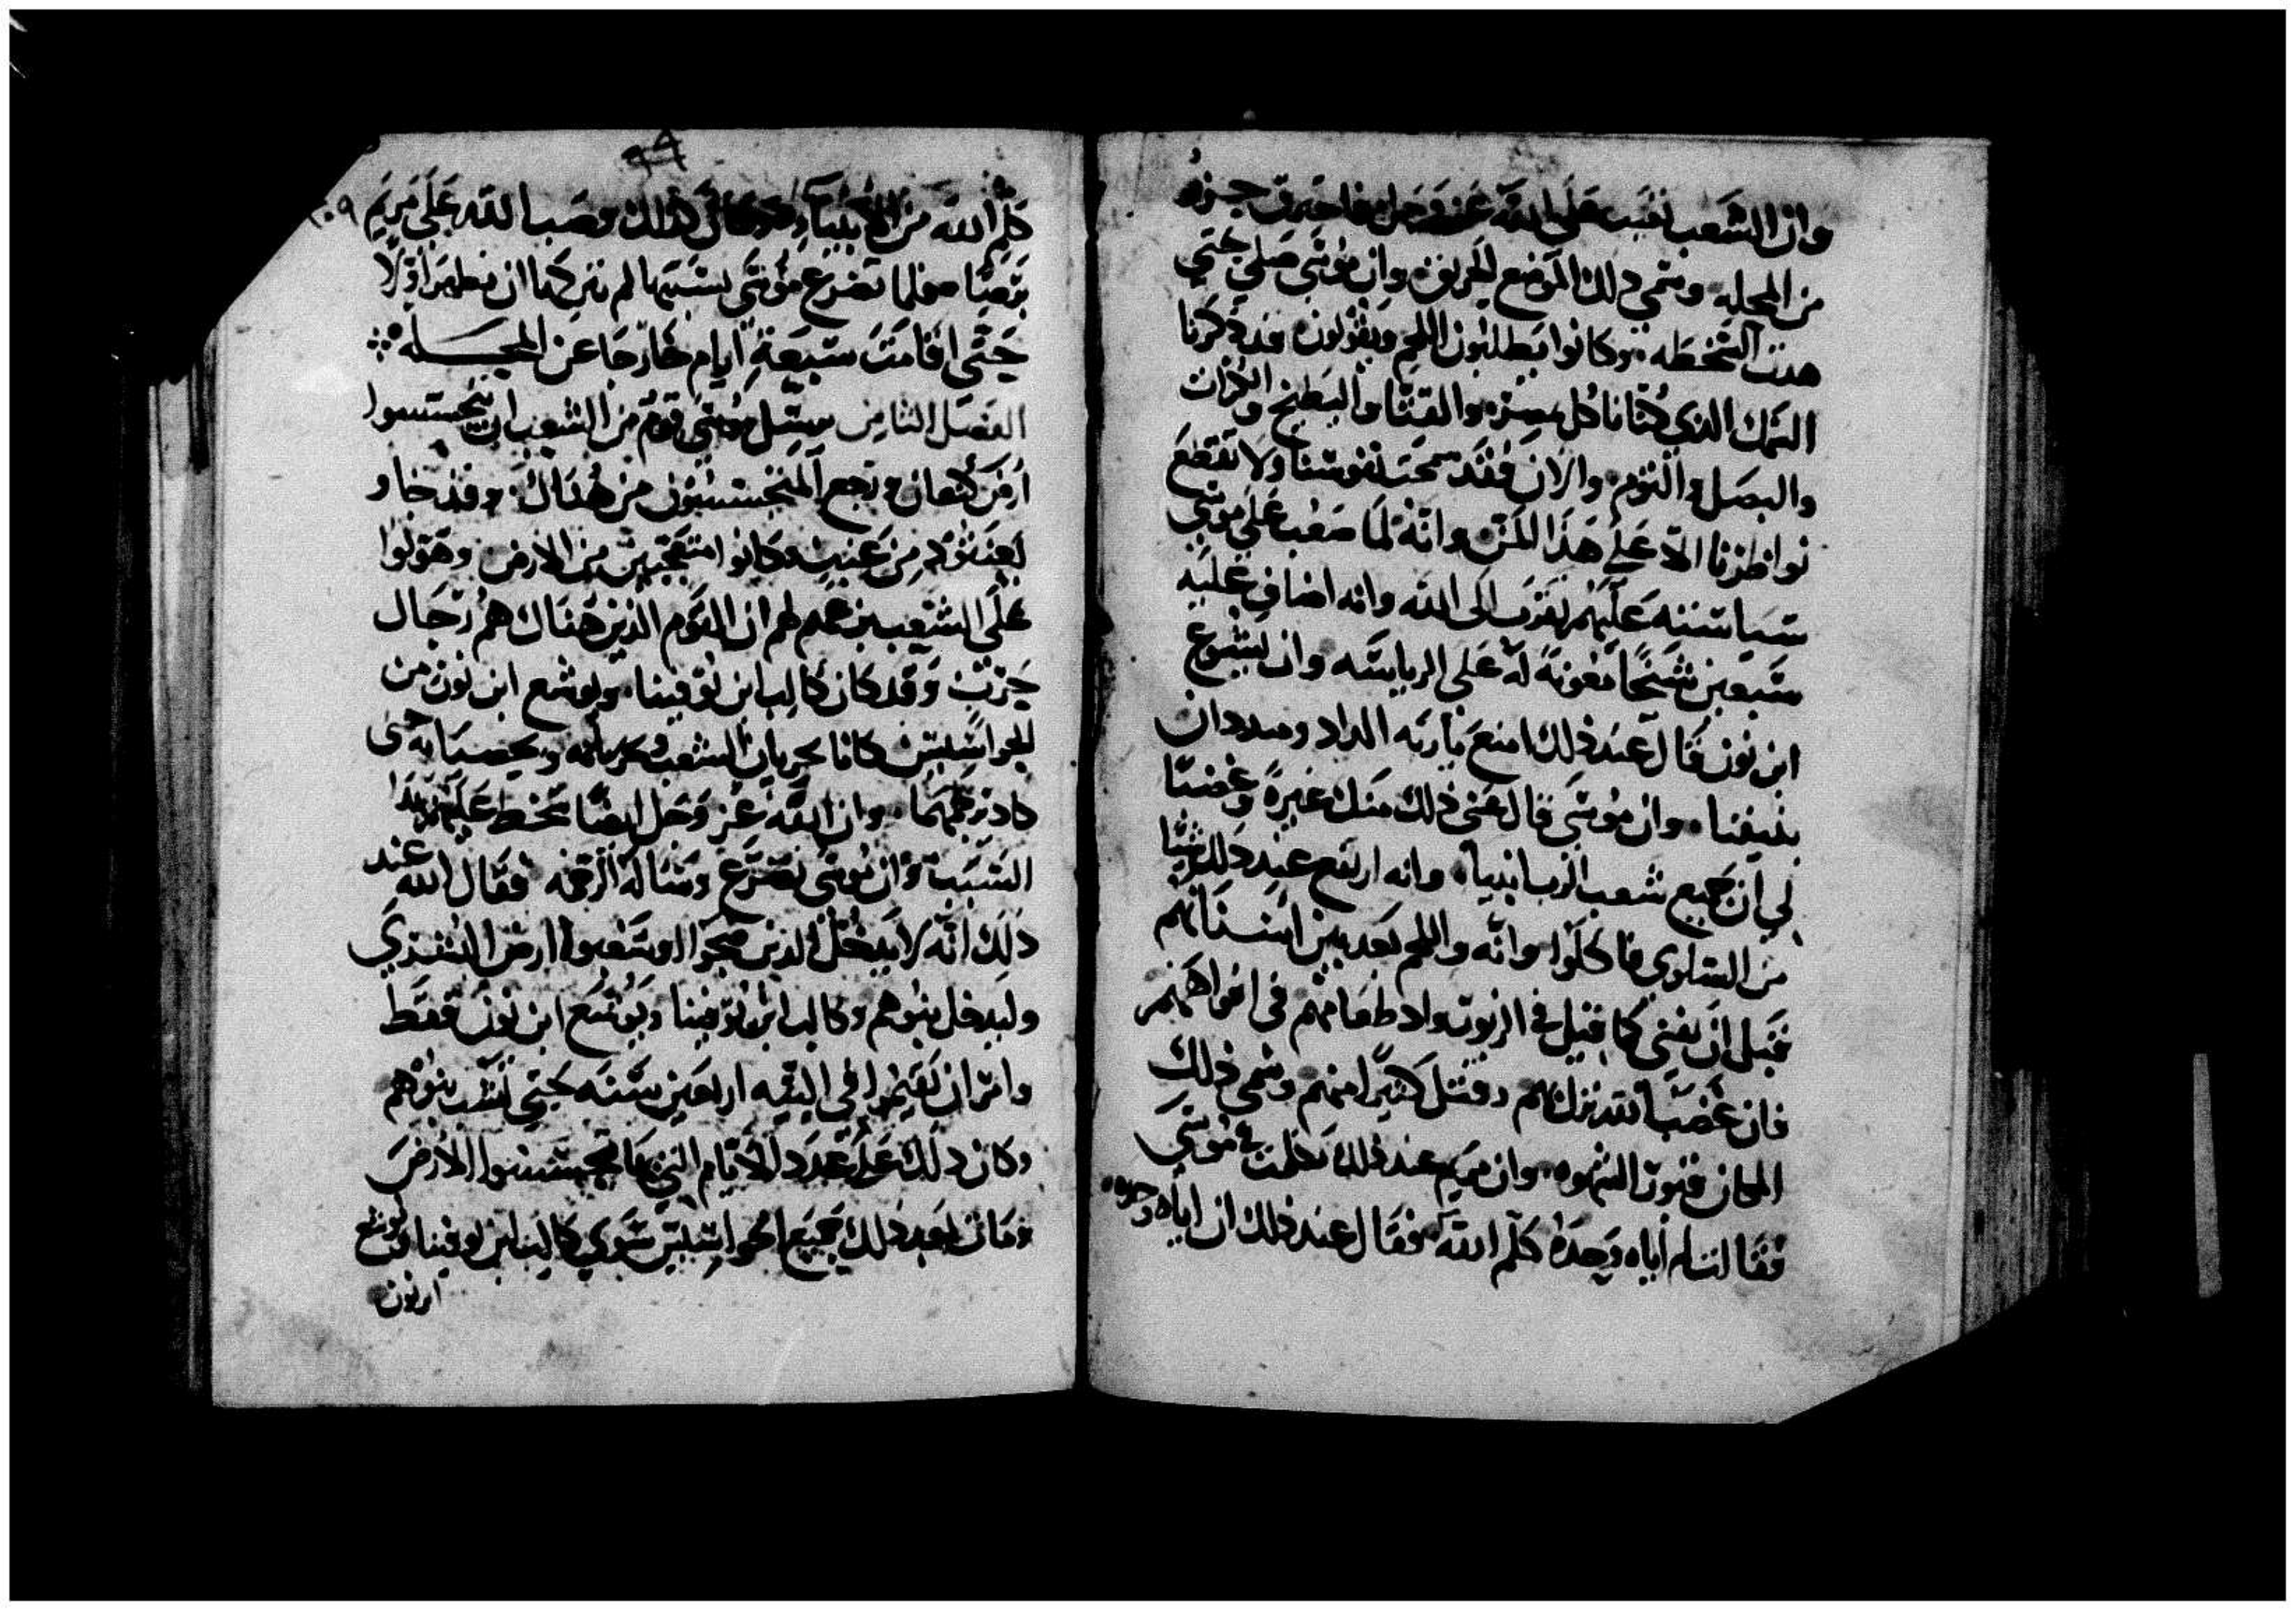 وان الشعب نقب على الله عز وجل فاحترق جزء
من المحله وسمي ذلك الموضع الحريق وان موسى صلي حتي
هدت السخطه وكانوا يطلبون اللحم ويقولون قد ذكرنا
السمك الذي كنا ناكل بمصر والقثا والبطيخ والكراث
والبصل والثوم والان فقد سمحت نفوسنا ولا تقطع
نواظرنا الا على هذا المن وانه لما صعب على موسى
سياسته عليهم تقرب الى الله وانه اضاف عليه
سبعين شيخا معونة له على الرياسه وان يشوع
ابن نون قال عند ذلك امنع يا ربه الداد وميددان
وان موسى قال عنى ذلك منك غيرة وغضبا
لي ان جميع شعب الرب انبيا وانه ارتفع عند ذلك شيا
من السلوي فاكلوا وانه واللحم بعد بين اسنانهم
قبل ان يفنى كما قيل في الزبور واد طعامهم في افواههم
فان غضب الله نزل بهم وقتل كثيرا منهم وسمى ذلك
المكان قبور الشهوه وان مريم عند ذلك تكلمت في موسى
فقالت لم اياه وحده كلم الله فقال عند ذلك ان اياه وحده
٩٨
١٠٩
كلم الله من الانبياء كذلك وصب الله على مريم
برصا فلما تضرع موسى بسببها لم تترك ان تطهر اولا
حتى اقامت سبعة ايام خارجا عن المحله
الفصل الثامن يرسل موسى قوم من الشعب ان يتجسسوا
ارض كنعان ورجع المتجسسون من هناك وقد جاو
بعنقود من عنب وكانوا متعجبين من الارض وهولوا
على الشعب بزعمهم لهم ان القوم الذين هناك هم رجال
حرب وقد كان كالب ابن يوفينا ويوشع ابن نون من
الجواسيس كانا يجريان الشعب
كاد يرجمهما وان الله عز وجل ايضا سخط عليهم بهذا
السبب وان موسى تضرع وساله الرحمه فقال الله عند
ذلك انه لا يدخل الذين ضجوا وشغبوا ارض
وليدخل بنوهم وكالب ابن يوفينا ويوشع ابن نون فقط
وامر ان يقيموا في التيه اربعين سنه حتي بنوهم
وكان ذلك على عدد الايام التي تجسسوا الارض
ومات بعد ذلك جميع الجواسيس سوي كالب ابن يوفينا ويوشع
ابن نون